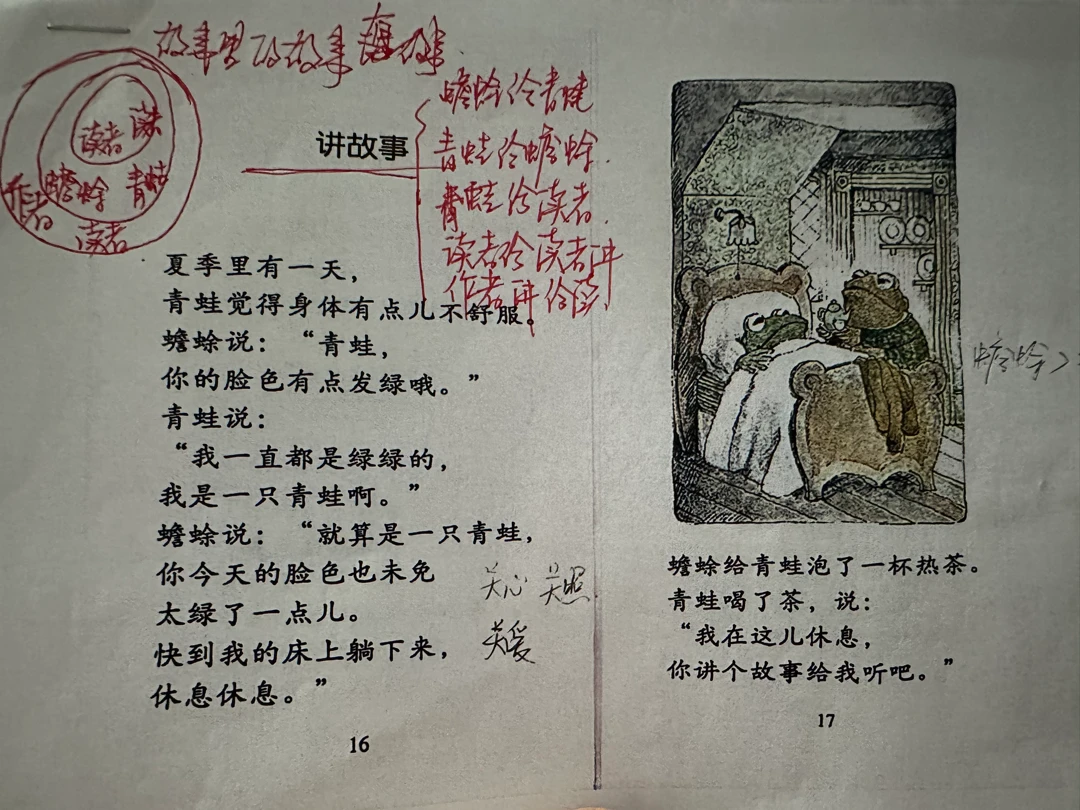 故事里的故事 故事
蟾蜍给青蛙
讲故事
青蛙给蟾蜍
青蛙给读者
读者给读者讲
作者讲给读
读者
蟾蜍 青蛙
作者
读者
夏季里有一天，
青蛙觉得身体有点儿不舒服。
蟾蜍说：“青蛙，
你的脸色有点发绿哦。”
青蛙说：
“我一直都是绿绿的，
我是一只青蛙啊。”
蟾蜍说：“就算是一只青蛙，
你今天的脸色也未免
太绿了一点儿。
快到我的床上躺下来，
休息休息。”
关心 关照
关爱
16
蟾蜍
蟾蜍给青蛙泡了一杯热茶。
青蛙喝了茶，说：
“我在这儿休息，
你讲个故事给我听吧。”
17